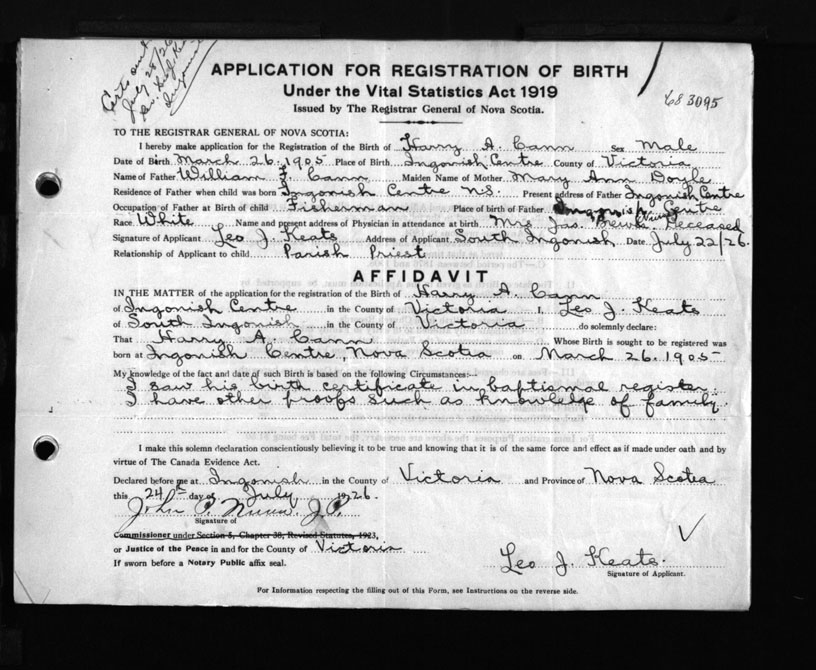 Certs sent
July 28/26
Ingonish
APPLICATION FOR REGISTRATION OF BIRTH
Under the Vital Statistics Act 1919
Issued by The Registrar General of Nova Scotia.
68 3095
TO THE REGISTRAR GENERAL OF NOVA SCOTIA:
I hereby make application for the Registration of the Birth of Harry A. Cann Sex Male
Date of Birth March 26. 1905 Place of Birth Ingonish Centre County of Victoria
Name of Father William F. Cann Maiden Name of Mother Mary Ann Doyle
Residence of Father when child was born Ingonish Centre N.S. Present address of Father Ingonish Centre
Occupation of Father at Birth of child Fisherman Place of birth of Father Ingonish Centre
Race White Name and present address of Physician in attendance at birth Mrs. Jas. (Nurse) Deceased
Signature of Applicant Leo J. Keats Address of Applicant South Ingonish Date July 22/26.
Relationship of Applicant to child Parish Priest
AFFIDAVIT
IN THE MATTER of the application for the registration of the Birth of Harry A. Cann
of Ingonish Centre in the County of Victoria I, Leo J. Keats
of South Ingonish in the County of Victoria do solemnly declare:
That Harry A. Cann Whose Birth is sought to be registered was
born at Ingonish Centre, Nova Scotia on March 26. 1905
My knowledge of the fact and date of such Birth is based on the following Circumstances:—
I saw his birth certificate in baptismal register.
I have other proofs such as knowledge of family.
I make this solemn declaration conscientiously believing it to be true and knowing that it is of the same force and effect as if made under oath and by
virtue of The Canada Evidence Act.
Declared before me at Ingonish in the County of Victoria and Province of Nova Scotia
this 24th day of July 1926.
John P. J.P.
Signature of
Commissioner under Section 5, Chapter 38, Revised Statutes, 1923,
or Justice of the Peace in and for the County of Victoria
If sworn before a Notary Public affix seal.
Leo J. Keats.
Signature of Applicant.
For Information respecting the filling out of this Form, see Instructions on the reverse side.